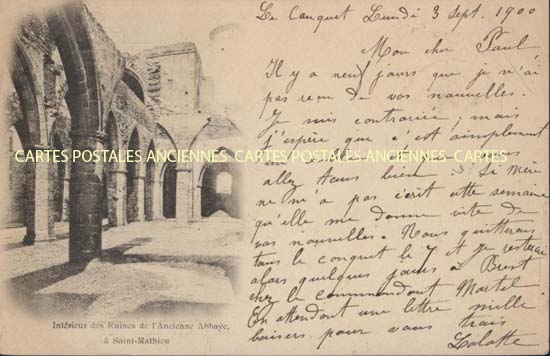 Le Conquet Lundi 3 Sept. 1900
Mon cher Paul
Il y a neuf jours que je n'ai
pas reçu de vos nouvelles.
Je suis contrariée, mais
j'espère que c'est simplement
CARTES POSTALES ANCIENNES CARTES POSTALES ANCIENNES CARTES POSTALES ANCIENNES
allez tous bien. Si Mère
ne m'a pas écrit cette semaine
qu'elle me donne vite de
vos nouvelles. Nous quitterons
tous le conquet le 7 et je resterai
alors quelques jours à Brest
chez le commandant Martel
En attendant une lettre mille
baisers pour vous trois
Intérieur des Ruines de l'Ancienne Abbaÿe,
à Saint-Mathieu